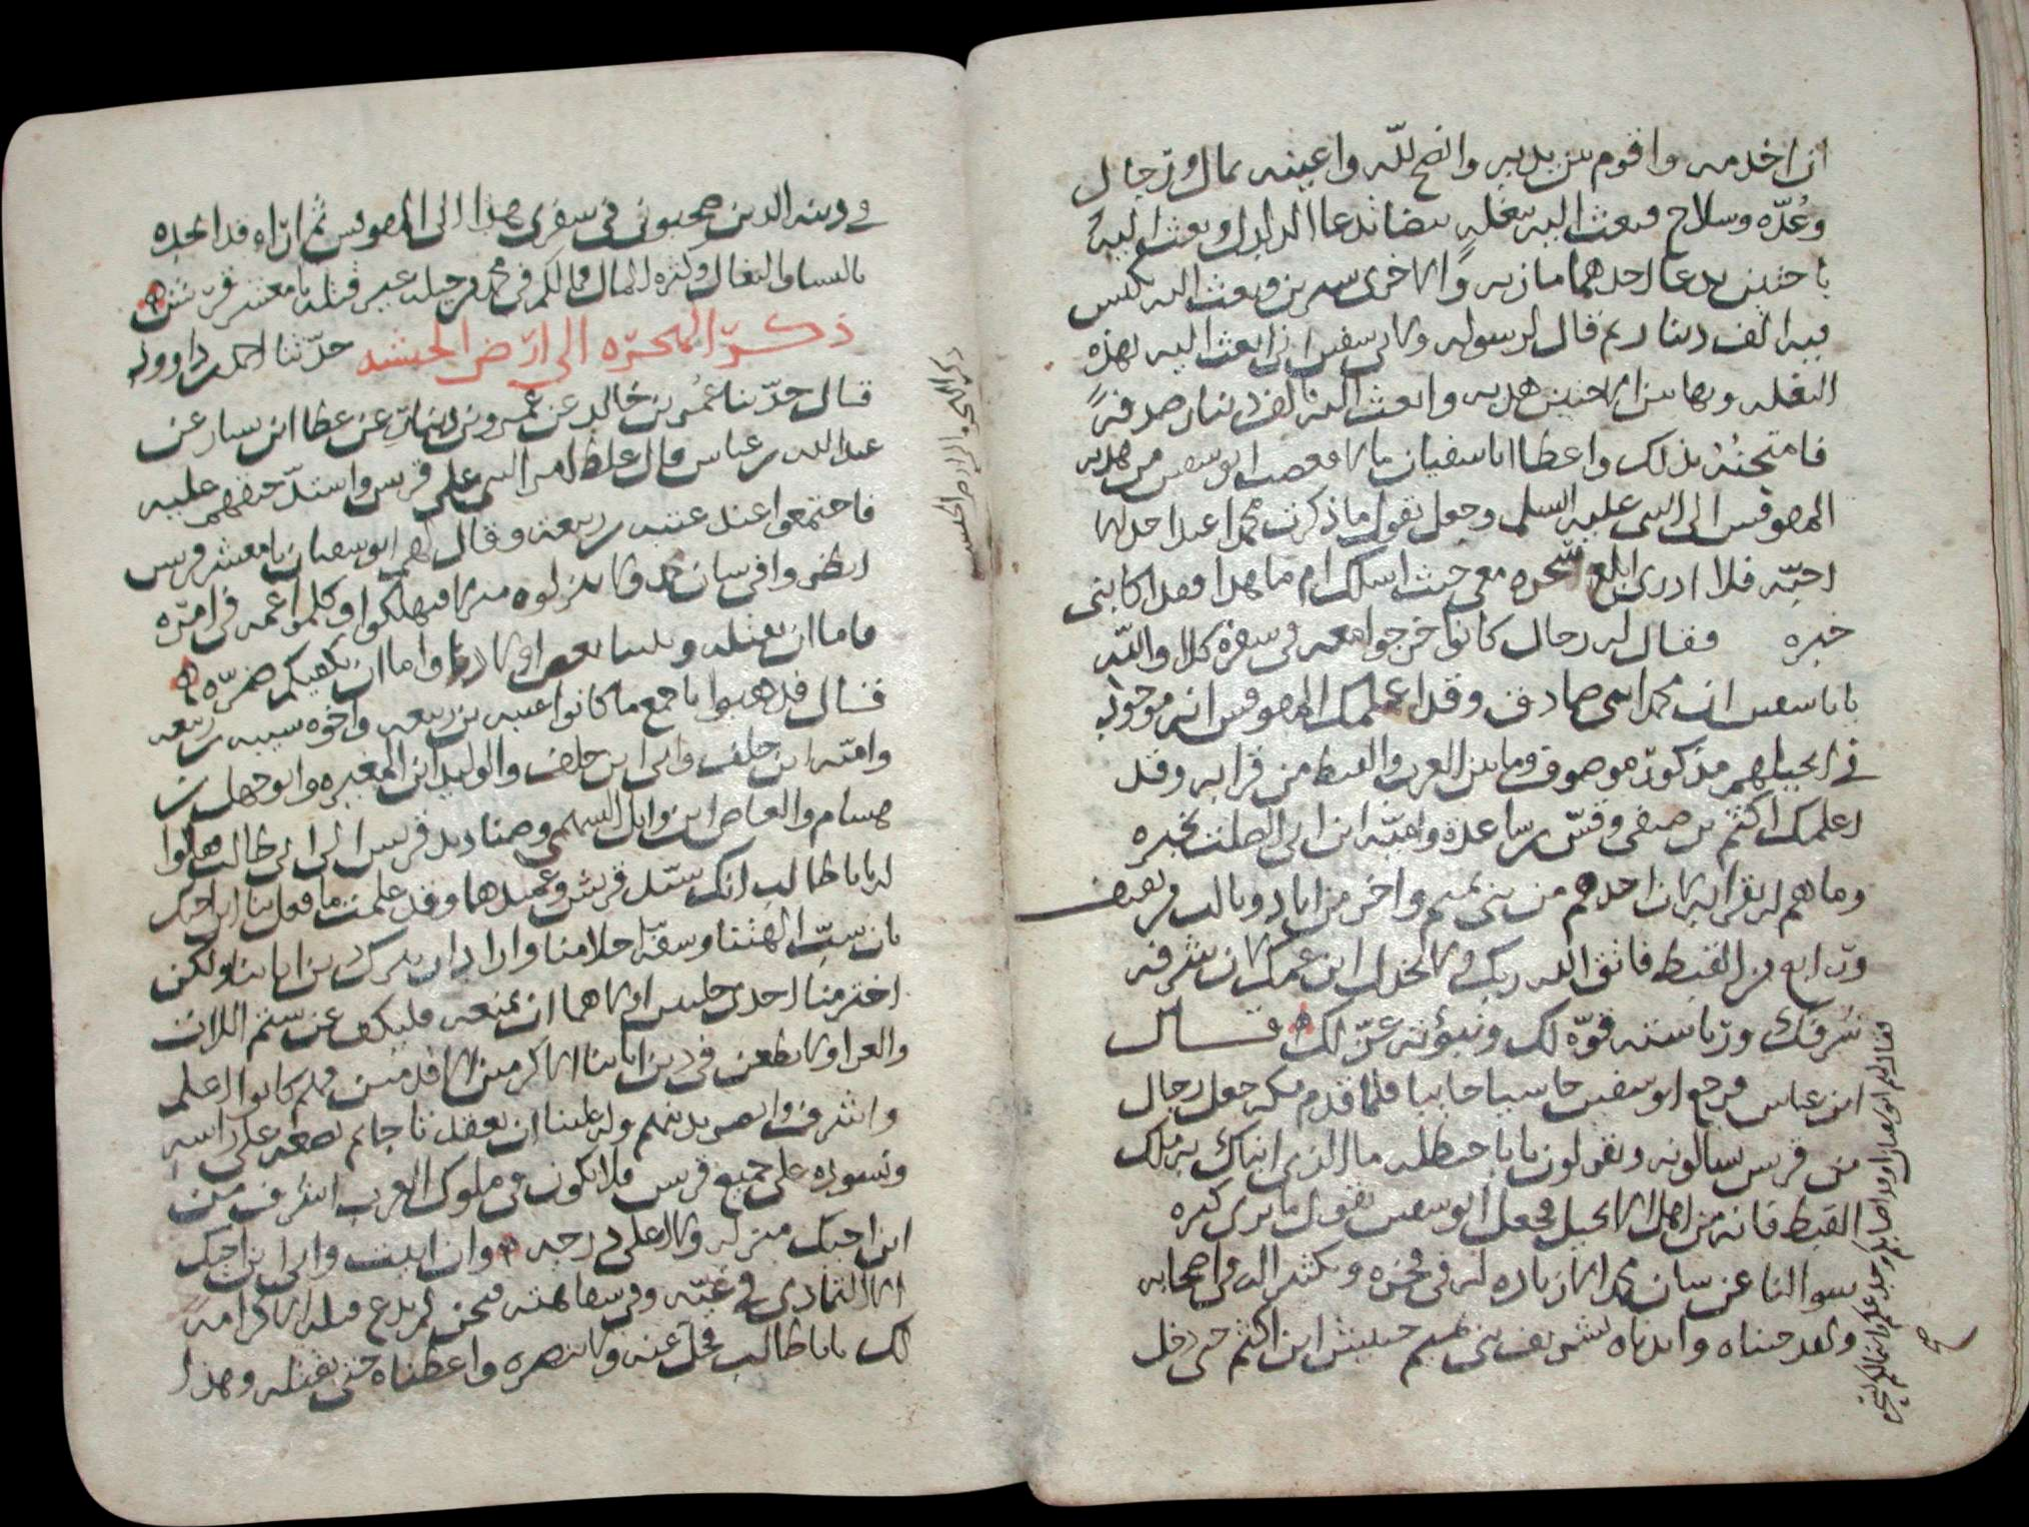 ان اخدمه واقوم بين يديه وانصح لله واعينه بمال ورجال
وعُدّه وسلاح فبعث اليه ببغله بيضا تدعا الدلدل وبعث اليه
باختين يدعا احدهما ماريه والاخرى سيرين وبعث اليه بكيس
فيه الف دينار ثم قال لرسوله ولابي سفين اني ابعث اليه بهذه
البغله وبهاتين الاختين هديه وابعث اليه بالف دينار صدقةً
فامتحنُهُ بذلك واعطا اباسفيان مالا فغضب ابو سفين من هديه
المقوقس الى النبي عليه السلم وجعل يقول ما ذكرت محمدا عند احد الا
احبّه فلا ادري ابلغ سحره معي حيث اسلك ام ما هذا فقد اكابني
خبره فقال له رجال كانوا خرجوا معه في سفره كلا والله
يابا سفين ان محمدا نبي صادق وقد اعلمك المقوقس انه موجود
في انجيلهم مذكور موصوف وما بين العرب والقبط من قرابه وقد
اعلمك اكثم بن صيفي وقسّ بن ساعدة واميّه ابن ابي الصلت بخبره
وما هم له بقرابه كان احدهم من بني تميم واخر من اياد وثالث من ثقيف
ورابع من القبط فاتق الله ربك ولا تخذل ابن عمك لان شرفه
شرفك ورياسته قوّه لك ونبوّته عزّ لك قال
ابن عباس فرجع ابو سفين خاسيا خايبا فلما قدم مكه جعل رجال
من قريس يسالونه ويقولون يابا حنظله ما الذي انباك به ملك
القبط فانه من اهل الانجيل فجعل ابو سفين يقول ما يرى كثره
سوالنا عن شان محمد الا زياده له في فخره ويكثر الله في اصحابه
ولقد جيناه واتيناه بشريف بني تميم حبيش ابن اكثم حتى دخل
في دينه الذين صحبوني في سفري هذا الى المقوقس ثم ان اه قد اتحده
بالنسا والبغال وكثره المال فما لكم في محمد من حيله غير قتله يا معشر قريش
ذكر الهجرّه الى ارّض الحبشه حدّثنا احمد بن داوود
قال حدّثنا عمرو بن خالد عن عمرو بن دينار عن عطا ابن يسار عن
عبد الله بن عباس قال غلظ امر النبي على قريس واشتدّ حنقهم عليه
فاجتمعوا عند عتبه بن ربيعه وقال لهم ابو سفيان يا معشر قريس
انظروا في شان محمد ولا تنزلوه منزلا فتهلكوا وكلموا عمه في امرّه
فاما ان نقتله ويلينا بعض اولادنا واما ان يكفيكم ضرّه
قال فذهبوا باجمع ما كانوا عتبه بن ربيعه واخوه شيبه بن ربيعه
واميّه ابن خلف وابي ابن خلف والوليد ابن المغيره وابو جهل بن
هشام والعاص ابن وايل السهمي وصناديد قريس الى ابي طالب فقالوا
له يابا طالب انك سيّد قريش وعميدها وقد علمت ما فعل بنا ابن اخيك
بان سبّ الهتنا وسفّه احلامنا واراد ان يدرك دين اباينا ولكن
اختر منا احدى خليتين اولاهما ان تمنعه فليكف عن شتم اللات
والعزا ولا يطعن في دين اباينا الاكرمين الاقدمين فهم كانوا اعلم
واشرف وابصر بدينهم وله علينا ان نعقد تاجا ثم نضعه على راسه
ونسوده على جميع قريس فلا يكون في ملوك العرب اشرف من
ابن اخيك منزله ولا اعلى درجه وان ابيت وابى ابن اخيك
الا التمادي في غيّه وفي سفاهته فنحن لم ندع قبله الا كرامةً
لك يابا طالب فخل عنه ولا تنصره واعطناه حتى نقتله وهذا